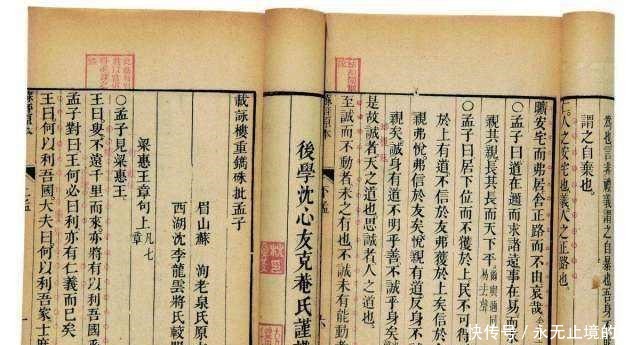 為也言非禮義謂之自暴也吾身
謂之自棄也。
仁人之安宅也義人之正路也。
曠安宅而弗居舍正路而不由哀哉
○孟子曰道在邇而求諸遠事在易而
親其親長其長而天下平 爾與邇同易去聲
○孟子曰居下位而不獲於上民不可得
於上有道不信於友弗獲於上矣信於
親弗悅弗信於友矣悅親有道反身不
親矣誠身有道不明乎善不誠身矣
是故誠者天之道也思誠者人之道也
至誠而不動者未之有也不誠未有能動者
下孟
後學沈心友克菴氏謹
載詠樓重鐫硃批孟子
眉山蘇 洵老泉氏原
西湖沈李龍雲將氏較閱
梁惠王章句上 凡七章
○孟子見梁惠王
王曰叟不遠千里而來亦將有以利吾
孟子對曰王何必曰利亦有仁義而已矣
王曰何以利吾國大夫曰何以利吾家士庶
快传号 / 永无止境的